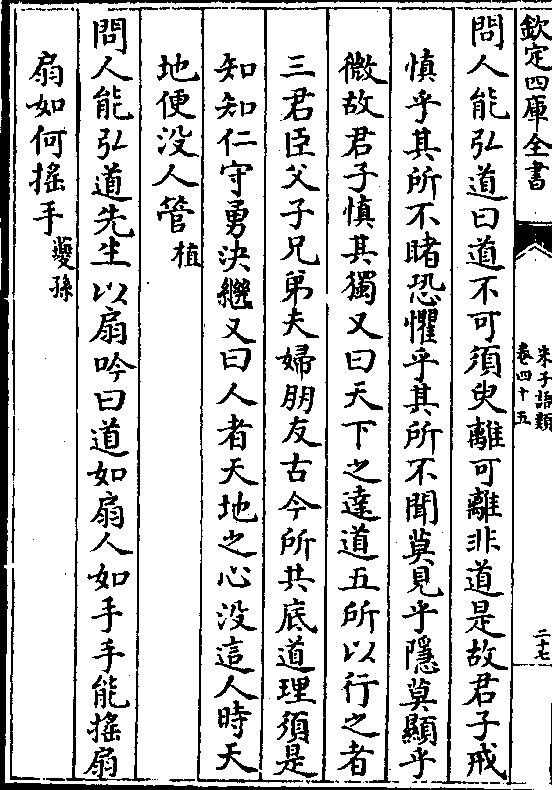 欽定四庫全書
朱子語類
卷四十五
二十七
問人能弘道曰道不可須臾離可離非道是故君子戒
慎乎其所不睹恐懼乎其所不聞莫見乎隱莫顯乎
微故君子慎其獨又曰天下之達道五所以行之者
三君臣父子兄弟夫婦朋友古今所共底道理須是
知知仁守勇決繼又曰人者天地之心没這人時天
地便没人管植
問人能弘道先生以扇吟曰道如扇人如手手能搖扇
扇如何搖手夔孫